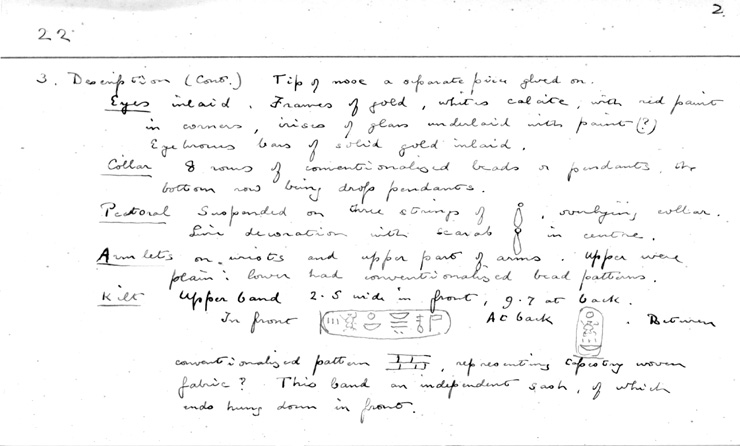 2.
22
3. Description (Cont.) Tip of nose a separate piece glued on.
Eyes inlaid. Frames of gold, whites calcite, with red paint
in corners, irises of glass underlaid with paint (?)
Eyebrows bars of solid gold inlaid.
Collar 8 rows of conventionalised beads or pendants, the
bottom row being drop pendants.
Pectoral Suspended on three strings of , overlying collar.
Line decoration with scarab in centre.
Armlets on wrists and upper part of arms. Upper were
plain: lower had conventionalised bead patterns.
Kilt Upper band 2.5 wide in front, 9.7 at back.
In front At back . Between
conventionalized pattern , representing tapestry woven
fabric? This band an independent sash, of which
ends hung down in front.